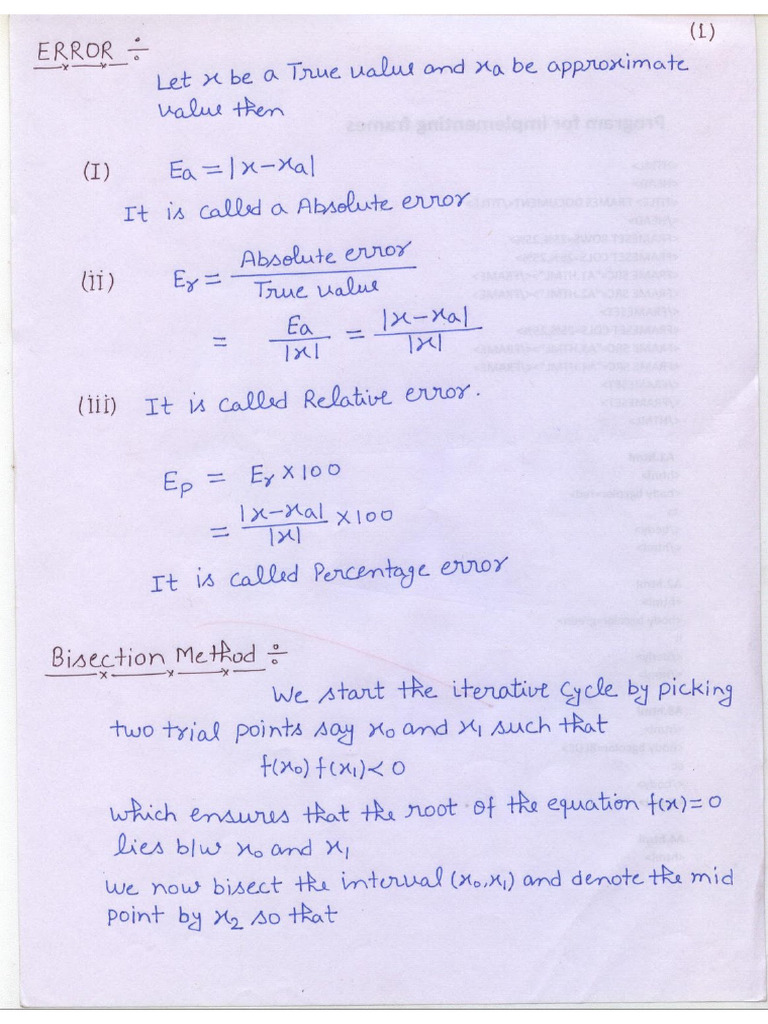 (1)
ERROR ÷
Let x be a True value and xa be approximate
value then
(I) Ea = |x-xa|
It is called a Absolute error
(ii) Er = Absolute error / True value
= Ea / |x| = |x-xa| / |x|
(iii) It is called Relative error.
Ep = Er × 100
= |x-xa| / |x| × 100
It is called Percentage error
Bisection Method ÷
We start the iterative cycle by picking
two trial points say x0 and x1 such that
f(x0) f(x1) < 0
which ensures that the root of the equation f(x) = 0
lies b/w x0 and x1
we now bisect the interval (x0,x1) and denote the mid
point by x2 so that